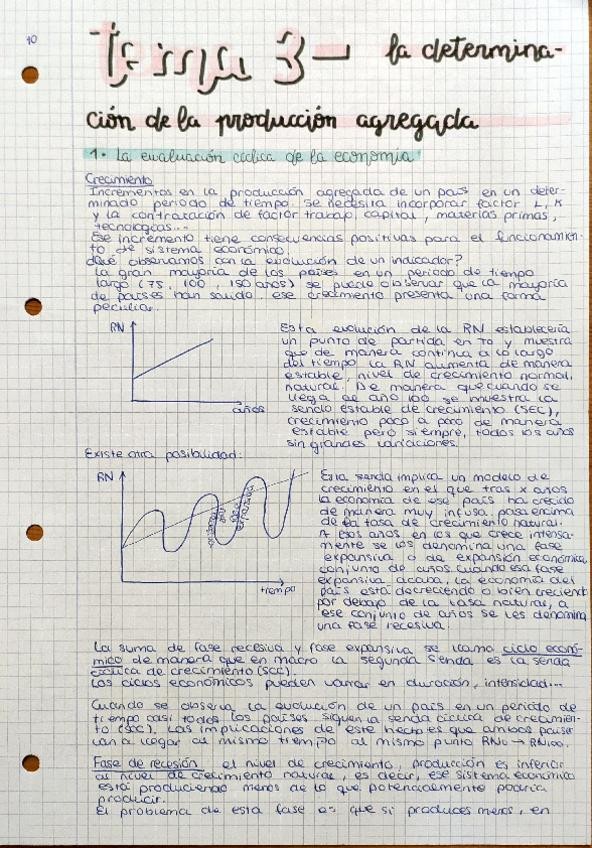 10
Tema 3- la determina-
ción de la producción agregada
1. La evaluación cíclica de la economía
Crecimiento
Incrementos en la producción agregada de un país en un deter-
minado periodo de tiempo. Se necesita incorporar factor L, K
y la contratación de factor trabajo, capital, materias primas,
tecnologías...
Ese incremento tiene consecuencias positivas para el funcionamien-
to de sistema económico.
¿Qué observamos con la evolución de un indicador?
La gran mayoría de los países en un periodo de tiempo
largo (75, 100, 150 años) se puede observar que la mayoría
de países han salido. ese crecimiento presenta una forma
peculiar.
RN
años
Esta evolución de la RN establecería
un punto de partida en to y muestra
que de manera continua a lo largo
del tiempo la RN aumenta de manera
estable, nivel de crecimiento normal,
natural. De manera que cuando se
llega al año 100 se muestra la
senda estable de crecimiento (SEC),
crecimiento poco a poco de manera
estable pero siempre, todos los años
sin grandes variaciones.
Existe otra posibilidad:
RN
expansiva
tiempo
Esta senda implica un modelo de
crecimiento en el que tras x años
la economía de ese país ha crecido
de manera muy infusa, pasa encima
de la tasa de crecimiento natural.
A esos años en los que crece intensa-
mente se los denomina una fase
expansiva o de expansión económica,
conjunto de años. Cuando esa fase
expansiva acaba, la economía del
país está decreciendo o bien creciendo
por debajo de la tasa natural, a
ese conjunto de años se les denomina
una fase recesiva.
La suma de fase recesiva y fase expansiva se llama ciclo econó-
mico de manera que en macro la segunda senda es la senda
cíclica de crecimiento (SCC).
Los ciclos económicos pueden variar en duración, intensidad...
Cuando se observa la evolución de un país en un periodo de
tiempo casi todos los países siguen la senda cíclica de crecimien-
to (SCC). Las implicaciones de este hecho es que ambos países
van a llegar al mismo tiempo al mismo punto RN0 → RN100.
Fase de recesión: el nivel de crecimiento, producción es inferior
al nivel de crecimiento natural, es decir, ese sistema económico
está produciendo menos de lo que potencialmente podría
producir.
El problema de esta fase es que si produces menos, en